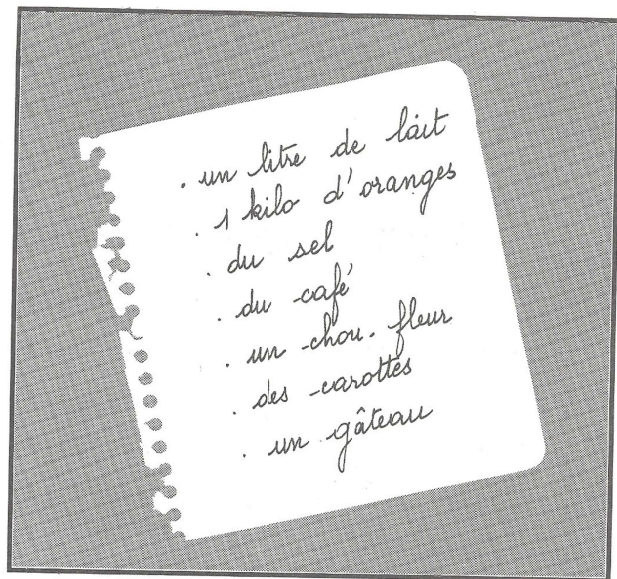 . un litre de lait
. 1 kilo d'oranges
. du sel
. du café
. un chou-fleur
. des carottes
. un gâteau